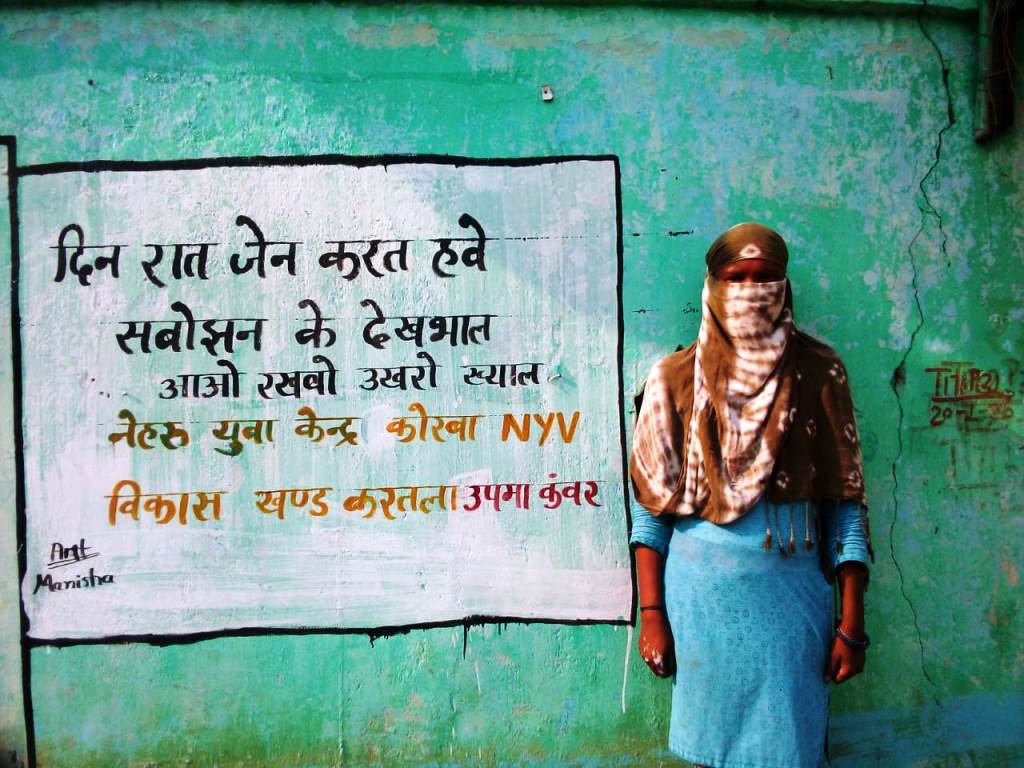 दिन रात जेन करत हवे
सबोझन के देखभाल
आओ रखवो उखरो ख्याल
नेहरू युवा केन्द्र कोरबा NYV
विकास खण्ड करतला उपमा कंवर
Art
Manisha